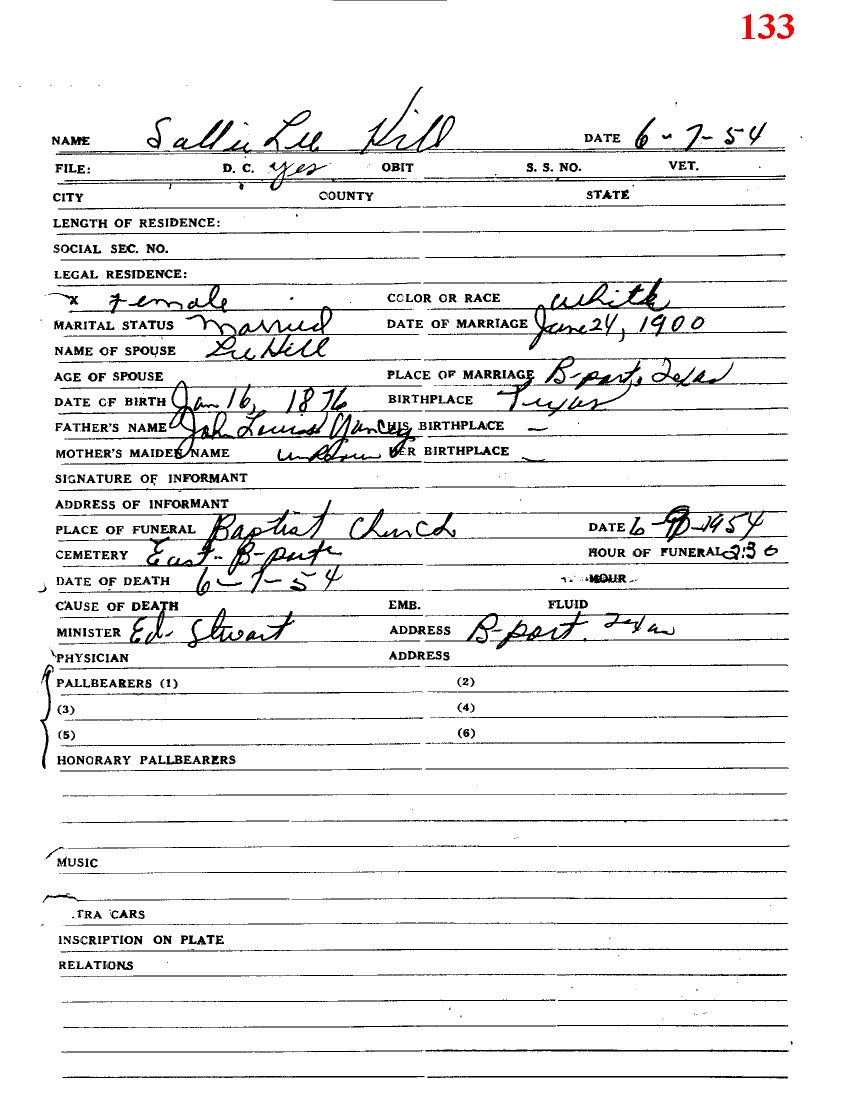 133
NAME Sallie Lee Hill DATE 6-7-54
FILE: D. C. yes OBIT S. S. NO. VET.
CITY COUNTY STATE
LENGTH OF RESIDENCE:
SOCIAL SEC. NO.
LEGAL RESIDENCE:
X Female COLOR OR RACE White
MARITAL STATUS Married DATE OF MARRIAGE June 24, 1900
NAME OF SPOUSE Lee Hill
AGE OF SPOUSE PLACE OF MARRIAGE B-port, Texas
DATE OF BIRTH Jan 16, 1876 BIRTHPLACE Texas
FATHER'S NAME John Louis Yancey HIS BIRTHPLACE —
MOTHER'S MAIDEN NAME unknown HER BIRTHPLACE —
SIGNATURE OF INFORMANT
ADDRESS OF INFORMANT
PLACE OF FUNERAL Baptist Church DATE 6-9-1954
CEMETERY East-B-port HOUR OF FUNERAL 2:30
DATE OF DEATH 6-7-54 HOUR
CAUSE OF DEATH EMB. FLUID
MINISTER Ed- Stwart ADDRESS B-port. Texas
PHYSICIAN ADDRESS
PALLBEARERS (1) (2)
(3) (4)
(5) (6)
HONORARY PALLBEARERS
MUSIC
TRA CARS
INSCRIPTION ON PLATE
RELATIONS